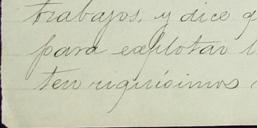 trabajos, y dice q
para explotar l
ten riquísimos